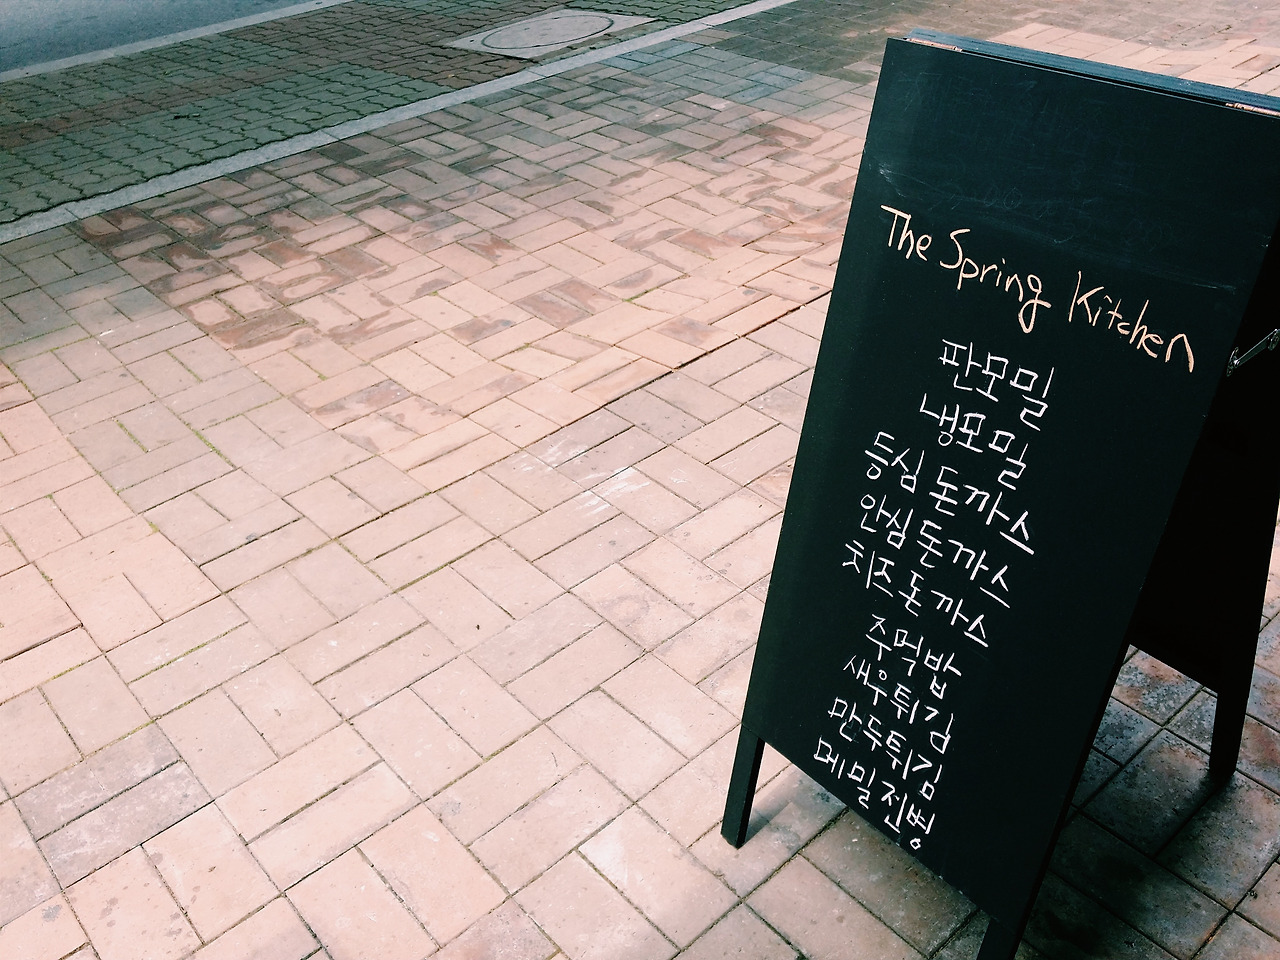 The Spring Kitchen
판모밀
냉모밀
등심 돈까스
안심 돈까스
치즈 돈까스
주먹밥
새우튀김
만두튀김
메밀전병